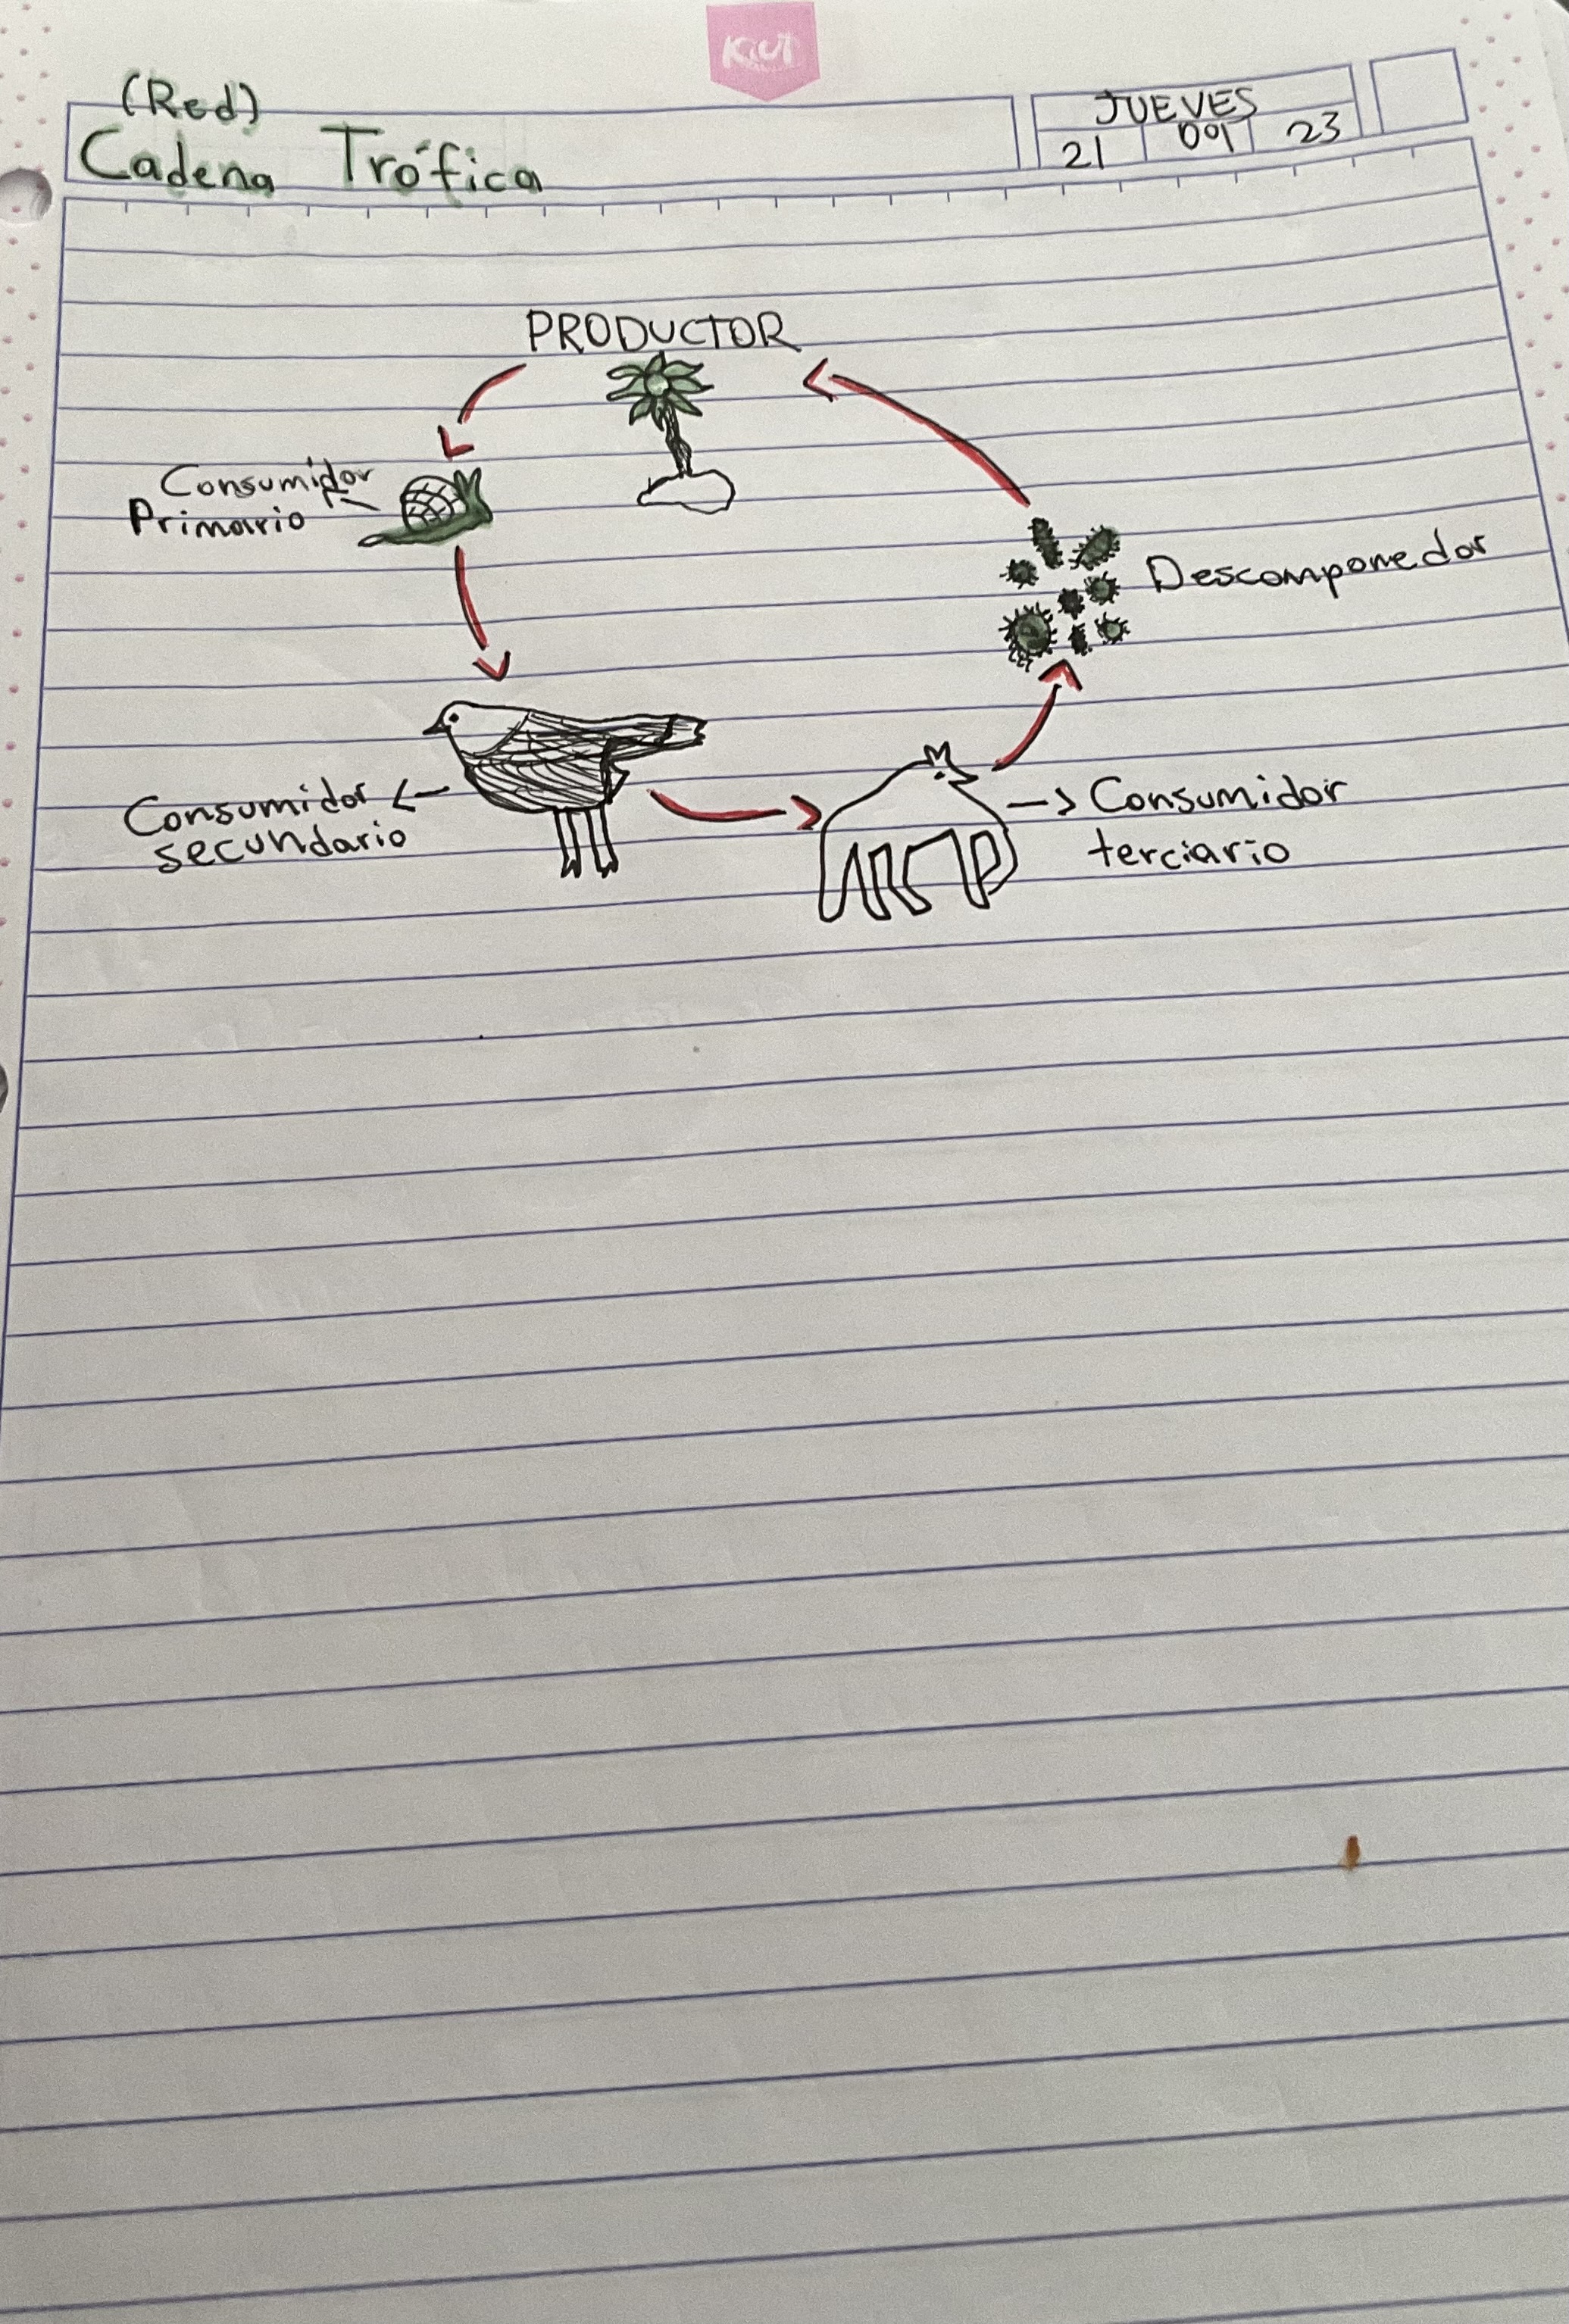 Kiut
(Red)
Cadena Trófica
JUEVES
21 09 23
PRODUCTOR
Consumidor
Primario
Descomponedor
Consumidor
secundario
Consumidor
terciario